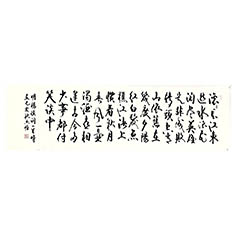 滚滚长江东
逝水浪花
淘尽英雄
是非成败
转头空青
山依旧在
几度夕阳
红白发渔
樵江渚上
惯看秋月
春风一壶
浊酒喜相
逢古今多
少事都付
笑谈中